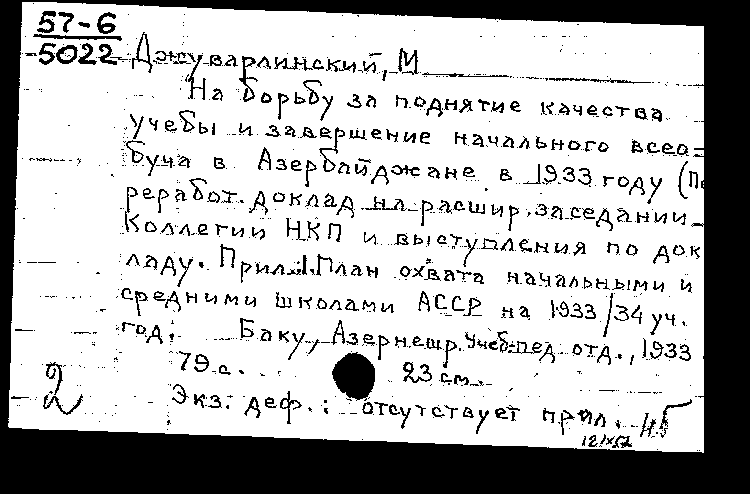 57-6
5022
Джуварлинский, М
На борьбу за поднятие качества
учебы и завершение начального всео=
буча в Азербайджане в 1933 году (Пе
реработ. доклад на расшир. заседании
Коллегии НКП и выступления по док
ладу. Прил.: 1. План охвата начальными и
средними школами АССР на 1933/34 уч.
год. Баку, Азернешр. Учеб.-пед. отд., 1933
79 с. 23 см.
2
Экз. деф.: отсутствует прил.